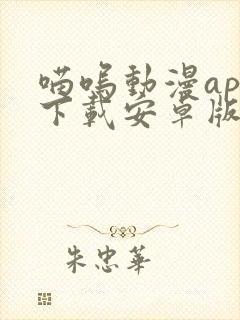 喵嗚動漫ap
下載安卓版
朱忠華